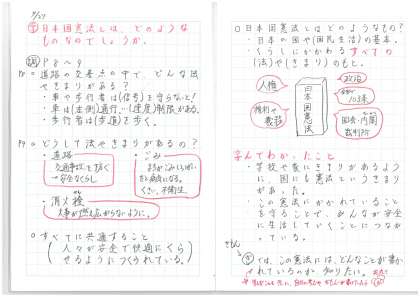 5/27
日本国憲法とは、どのような
ものなのでしょうか。
P8〜9
P8 ○道路の交差点の中で、どんな法
やきまりがある?
・車や歩行者は(信号)を守らないと!
・車は(左側)通行、(速度)制限がある。
・歩行者は(歩道)を歩く。
P9 ○どうして法やきまりがあるの?
・道路
交通事故を防ぐ
→安全なくらし
・ごみ
・消火栓
火事が燃え広がらないように。
○すべてに共通すること
(人々が安全で快適にくら
せるようにつくられている。)
○日本国憲法とはどのようなもの?
・日本の国や(国民生活)の基本。
・くらしにかかわるすべての
(法)や(きまり)のもと。
人権
権利や
義務
日本国憲法
政治
103条
国会・内閣
裁判所
学んでわかったこと
・学校や家にきまりがあるよう
に、国にも憲法というきまり
があった。
・この憲法にかかれていること
を守ることで、みんなが安全
に生活していくことにつなが
っている。
では、この憲法には、どんなことが書か
れているのか知りたい。